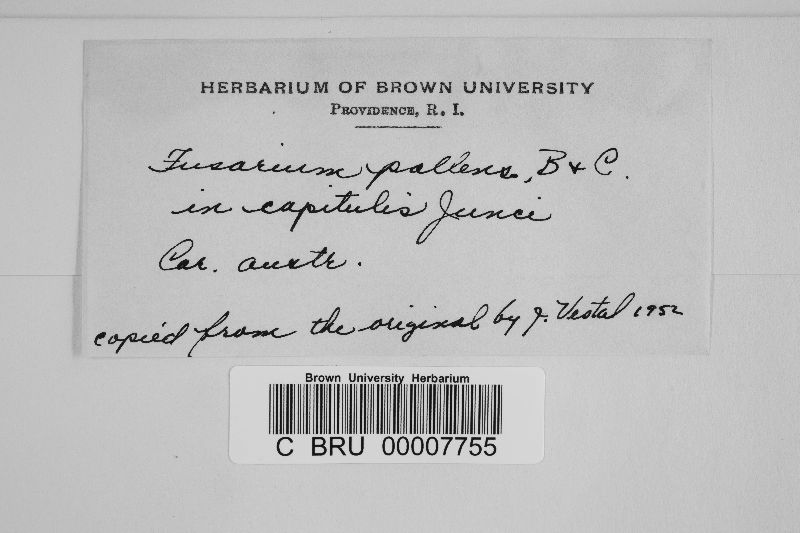 HERBARIUM OF BROWN UNIVERSITY
PROVIDENCE, R. I.
Fusarium pallens, B & C.
in capitulis Junci
Car. austr.
copied from the original by J. Vestal 1952
Brown University Herbarium
C BRU 00007755